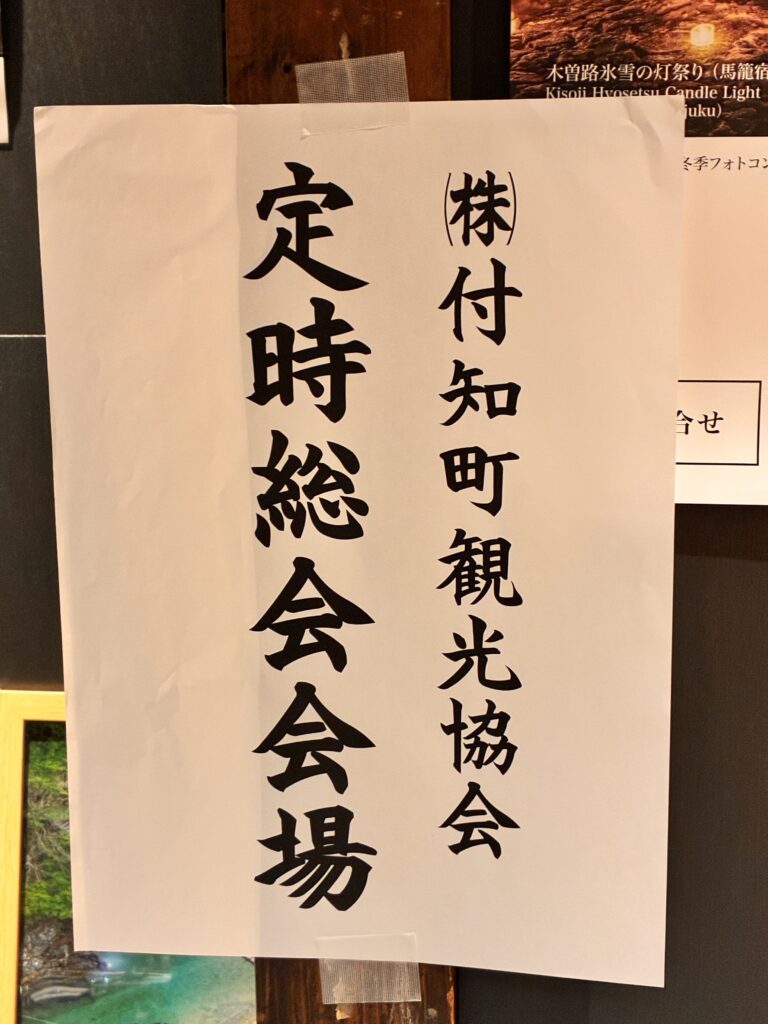 ㈱付知町観光協会
定時総会会場
木曽路氷雪の灯祭り（馬籠宿
Kisoji Hyosetsu Candle Light
juku)
冬季フォトコン
合せ